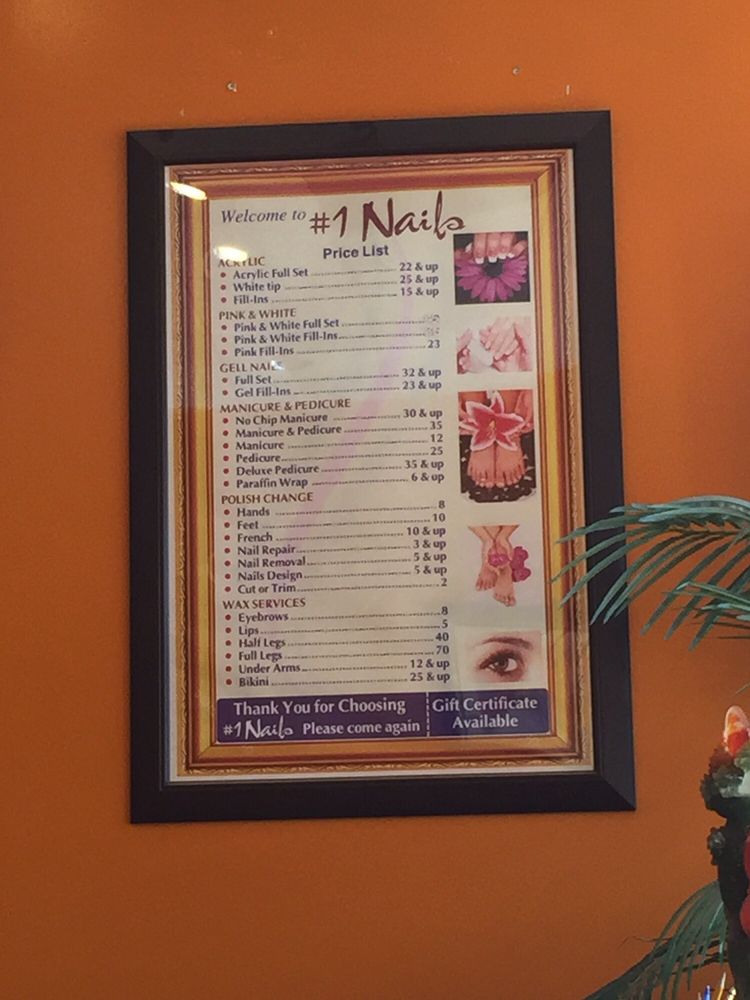 Welcome to #1 Nails
Price List
ACRYLIC
Acrylic Full Set 22 & up
White tip 25 & up
Fill-Ins 15 & up
PINK & WHITE
Pink & White Full Set
Pink & White Fill-Ins
Pink Fill-Ins 23
GELL NAILS
Full Set 32 & up
Gel Fill-Ins 23 & up
MANICURE & PEDICURE
No Chip Manicure 30 & up
Manicure & Pedicure 35
Manicure 12
Pedicure 25
Deluxe Pedicure 35 & up
Paraffin Wrap 6 & up
POLISH CHANGE
Hands 8
Feet 10
French 10 & up
Nail Repair 3 & up
Nail Removal 5 & up
Nails Design 5 & up
Cut or Trim 2
WAX SERVICES
Eyebrows 8
Lips 5
Half Legs 40
Full Legs 70
Under Arms 12 & up
Bikini 25 & up
Thank You for Choosing
#1 Nails Please come again
Gift Certificate
Available